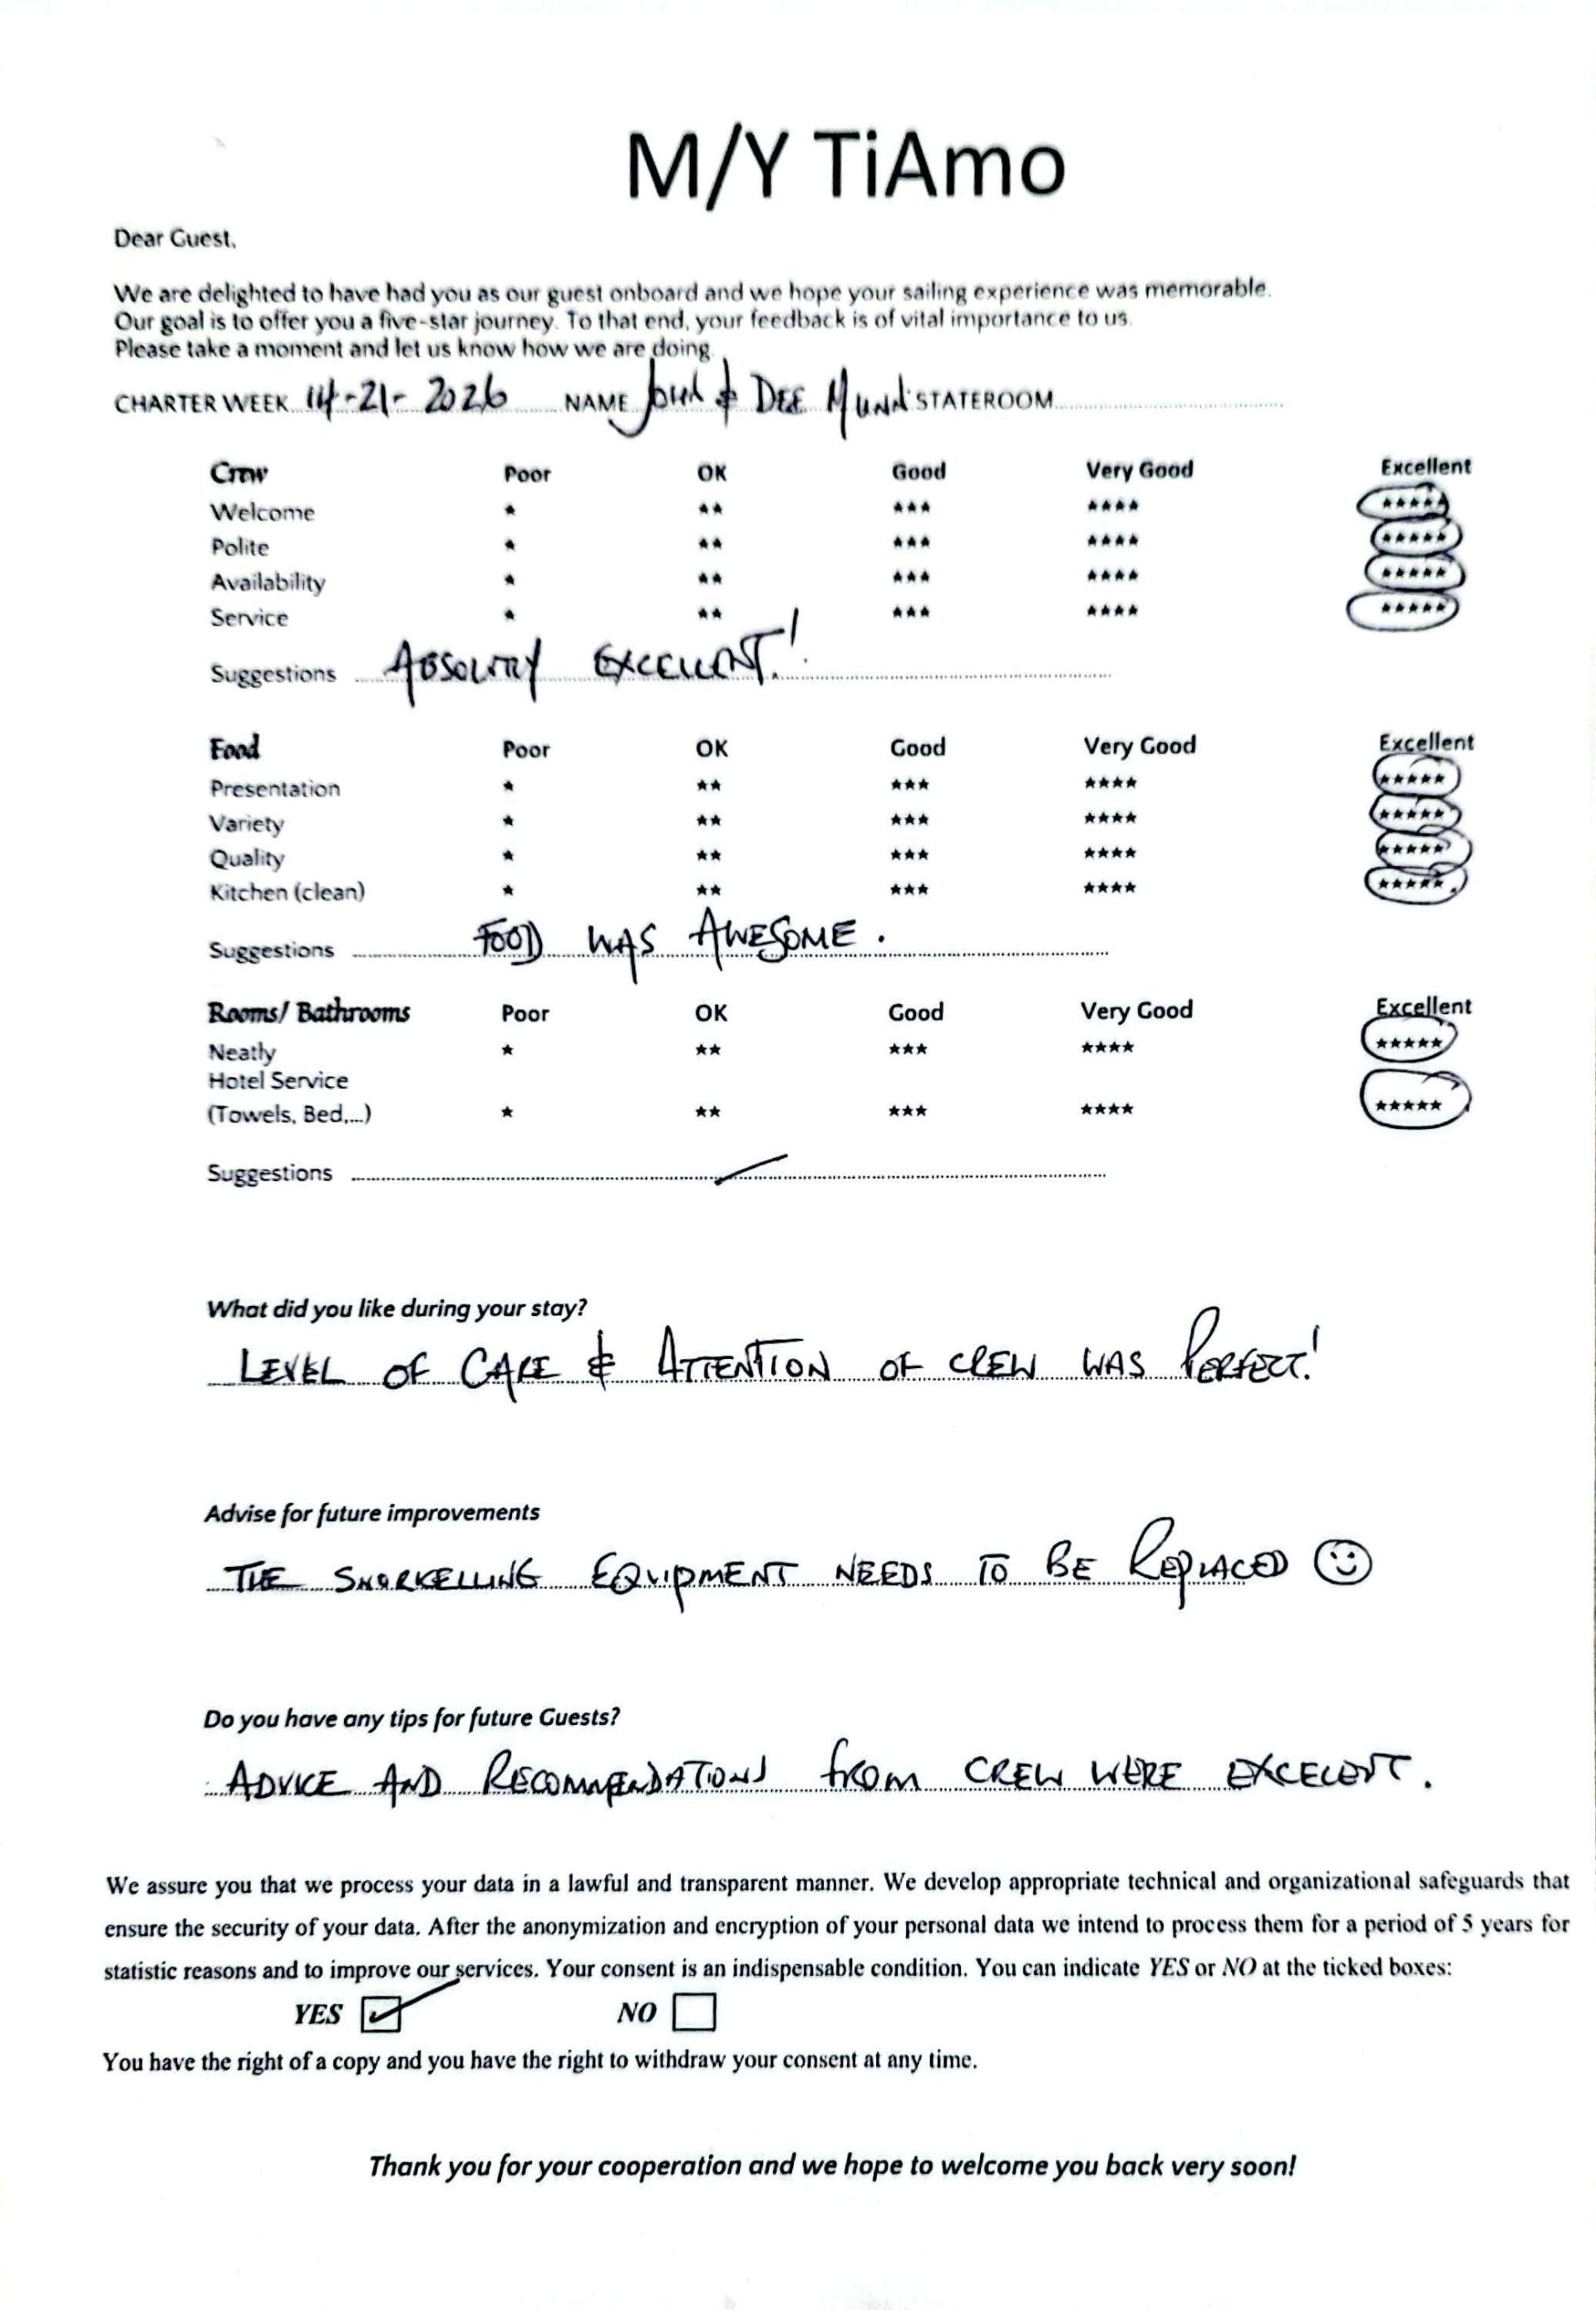 M/Y TiAmo
Dear Guest,
We are delighted to have had you as our guest onboard and we hope your sailing experience was memorable.
Our goal is to offer you a five-star journey. To that end, your feedback is of vital importance to us.
Please take a moment and let us know how we are doing.
CHARTER WEEK 14-21- 2026 NAME John & Dee Munn STATEROOM
Crew Poor OK Good Very Good Excellent
Welcome * ** *** **** *****
Polite * ** *** **** *****
Availability * ** *** **** *****
Service * ** *** **** *****
Suggestions ABSOLTLY EXCELLENT!
Food Poor OK Good Very Good Excellent
Presentation * ** *** **** *****
Variety * ** *** **** *****
Quality * ** *** **** *****
Kitchen (clean) * ** *** **** *****
Suggestions FOOD WAS AWESOME.
Rooms/ Bathrooms Poor OK Good Very Good Excellent
Neatly * ** *** **** *****
Hotel Service
(Towels, Bed,...) * ** *** **** *****
Suggestions
What did you like during your stay?
LEVEL OF CARE & ATTENTION OF CREW WAS PERFECT!
Advise for future improvements
THE SNORKELLING EQUIPMENT NEEDS TO BE REPLACED ☺
Do you have any tips for future Guests?
ADVICE AND RECOMMENDATIONS from CREW WERE EXCELENT.
We assure you that we process your data in a lawful and transparent manner. We develop appropriate technical and organizational safeguards that
ensure the security of your data. After the anonymization and encryption of your personal data we intend to process them for a period of 5 years for
statistic reasons and to improve our services. Your consent is an indispensable condition. You can indicate YES or NO at the ticked boxes:
YES ☑ NO ☐
You have the right of a copy and you have the right to withdraw your consent at any time.
Thank you for your cooperation and we hope to welcome you back very soon!